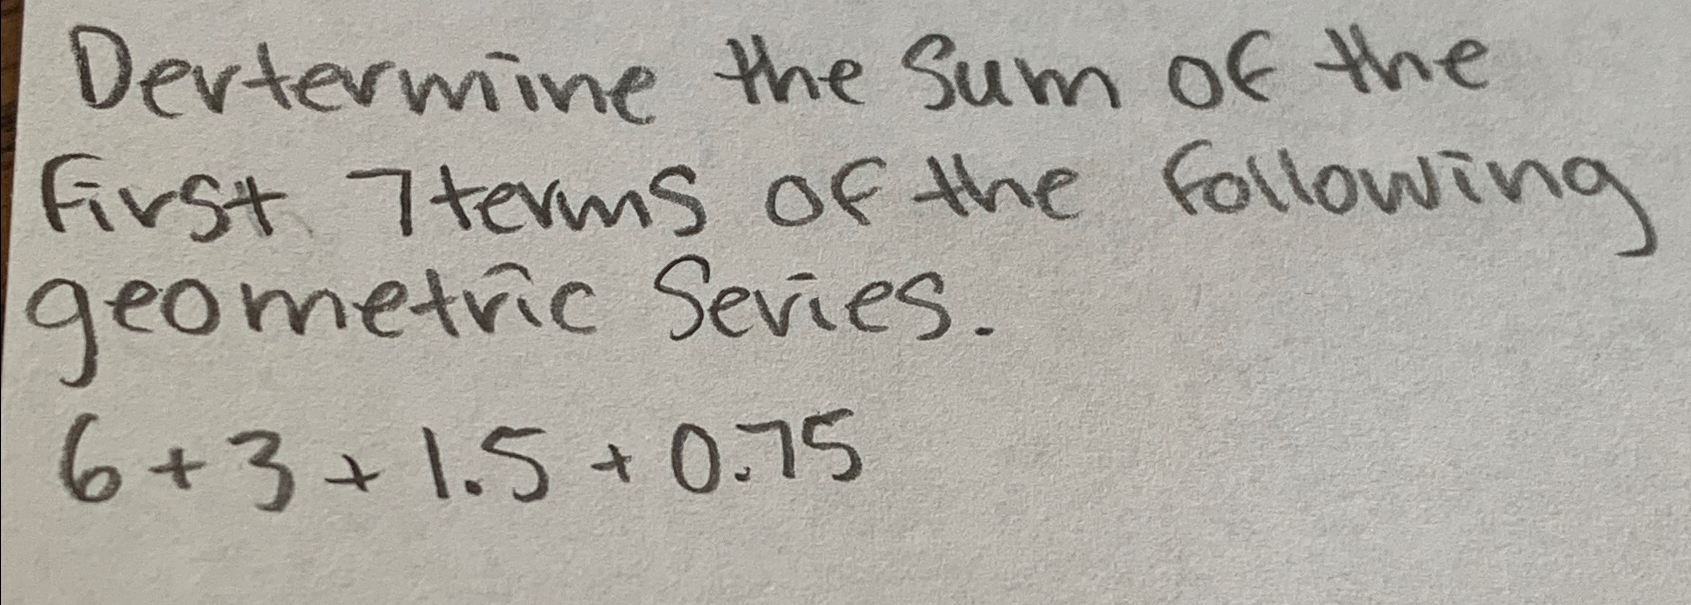 Dertermine the Sum of the
first 7 terms of the following
geometric Series.
6 + 3 + 1.5 + 0.75